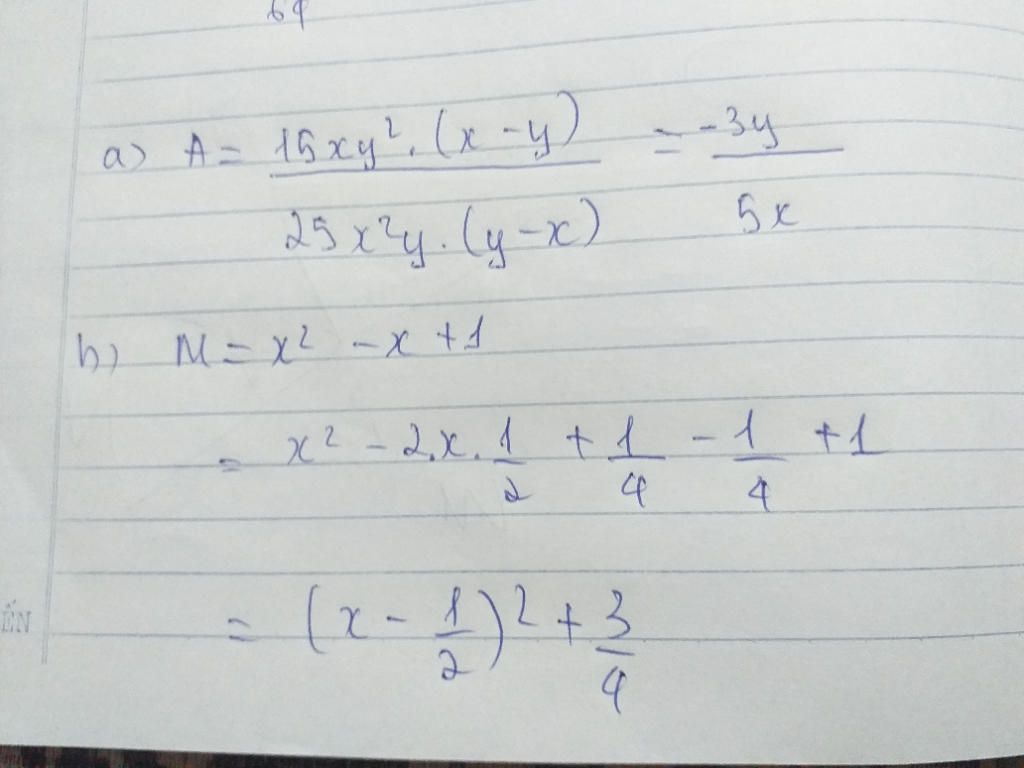 64
a) A = 15xy². (x - y) / 25x²y. (y - x) = -3y / 5x
b) M = x² - x + 1
= x² - 2.x. 1/2 + 1/4 - 1/4 + 1
= (x - 1/2)² + 3/4
ẾN